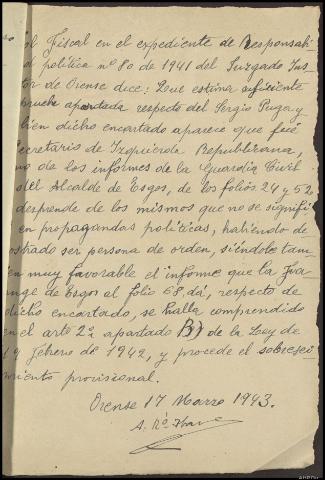 El Fiscal en el expediente de Responsabi
d politica nº 80 de 1941 del Juzgado Ins
tor de Orense dice: Que estima suficiente
prueba aportada respecto del Sergio Puga y
bien dicho encartado aparece que fué
ecretario de Izquierda Republicana,
no de los informes de la Guardia Civil
del Alcalde de Esgos, de los folios 24 y 52,
desprende de los mismos que no se signifi
en propagandas politicas, habiendo de
ostrado ser persona de orden, siéndole tam
én muy favorable el informe que la Fa
ange de Esgos al folio 68, dá, respecto de
dicho encartado, se halla comprendido
en el artº 2º, apartado B) de la Ley de
19 febrero de 1942, y procede el sobresei
miento provisional.
Orense 17 Marzo 1943.